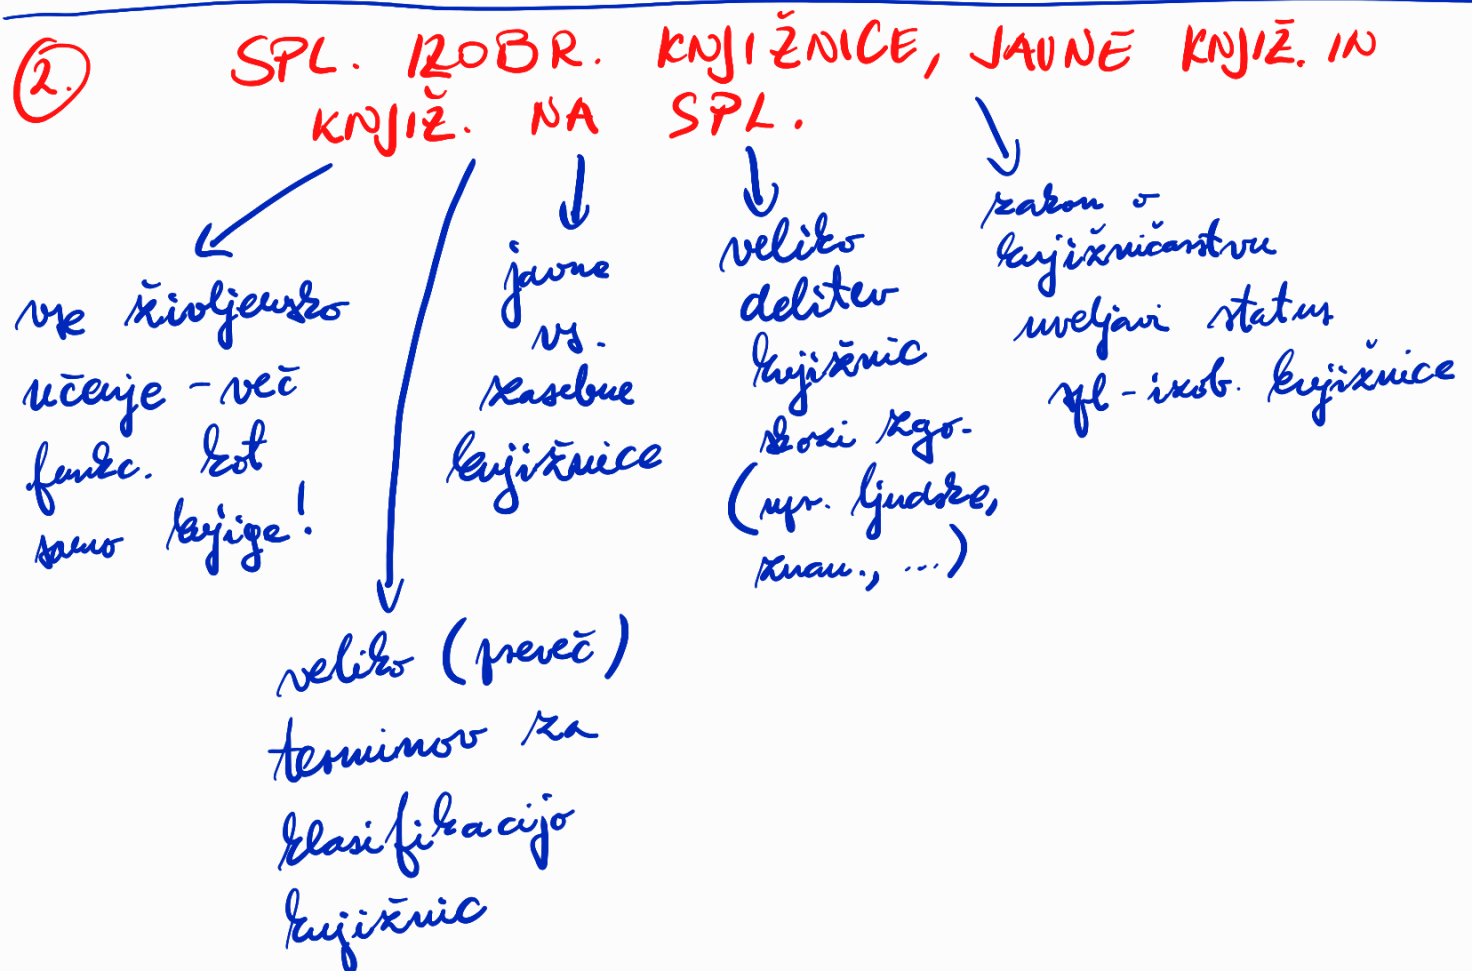 2. SPL. IZOBR. KNJIŽNICE, JAVNE KNJIŽ. IN
KNJIŽ. NA SPL.
vse življensko
učenje - več
funkc. kot
samo knjige!
veliko (preveč)
terminov za
klasifikacijo
knjižnic
javne
vs.
zasebne
knjižnice
veliko
delitev
knjižnic
skozi zgo.
(npr. ljudske,
znan., ...)
zakon o
knjižničarstvu
uveljavi status
spl-izob. knjižnice